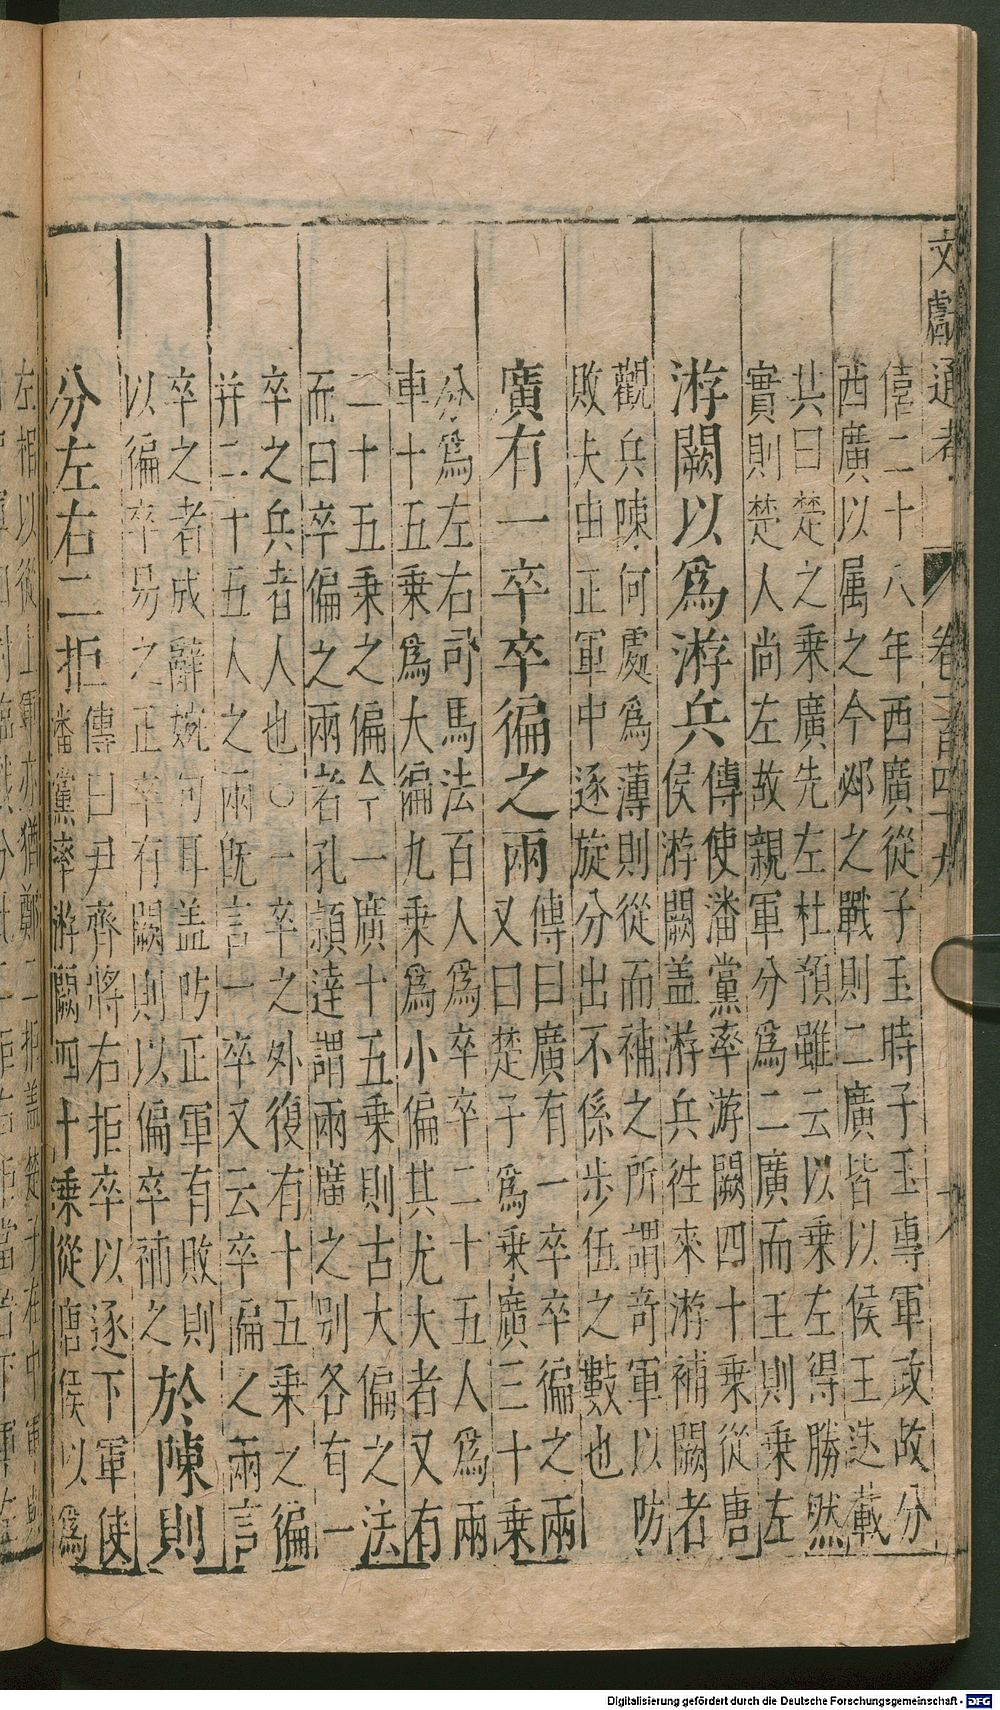 文獻通考 卷一百四十九 十八
僖二十八年西廣從子玉時子玉專軍政故分
西廣以属之今邲之戰則二廣皆以侯王迭載
其曰楚之乗廣先左杜預雖云以乗左得勝然
實則楚人尚左故親軍分為二廣而王則乗左
游闕以爲游兵 傳使潘黨率游闕四十乗從唐
侯游闕盖游兵徃來游補闕者
觀兵陳何處爲薄則從而補之所謂竒軍以防
敗夫由正軍中逐旋分出不係步伍之數也
廣有一卒卒徧之兩 傳曰廣有一卒卒徧之兩
又曰楚子爲乗廣三十乗
分爲左右司馬法百人爲卒卒二十五人爲兩
車十五乗爲大徧九乗爲小偏其尤大者又有
二十五乗之偏今一廣十五乗則古大偏之法
而曰卒偏之兩者孔頴逹謂兩廣之别各有一
卒之兵者人也〇一卒之外復有十五乗之徧
并二十五人之兩旣言一卒又云卒偏之兩言
卒之者成辭婉句耳盖防正軍有敗則
以徧卒易之正卒有闕則以偏卒補之 於陳則
分左右二拒 傳曰尹齊將右拒卒以逐下軍使
潘黨率游闕四十乗從唐侯以爲
左相以從上軍亦猶鄭二拒盖楚子在中軍與
Digitalisierung gefördert durch die Deutsche Forschungsgemeinschaft - DFG